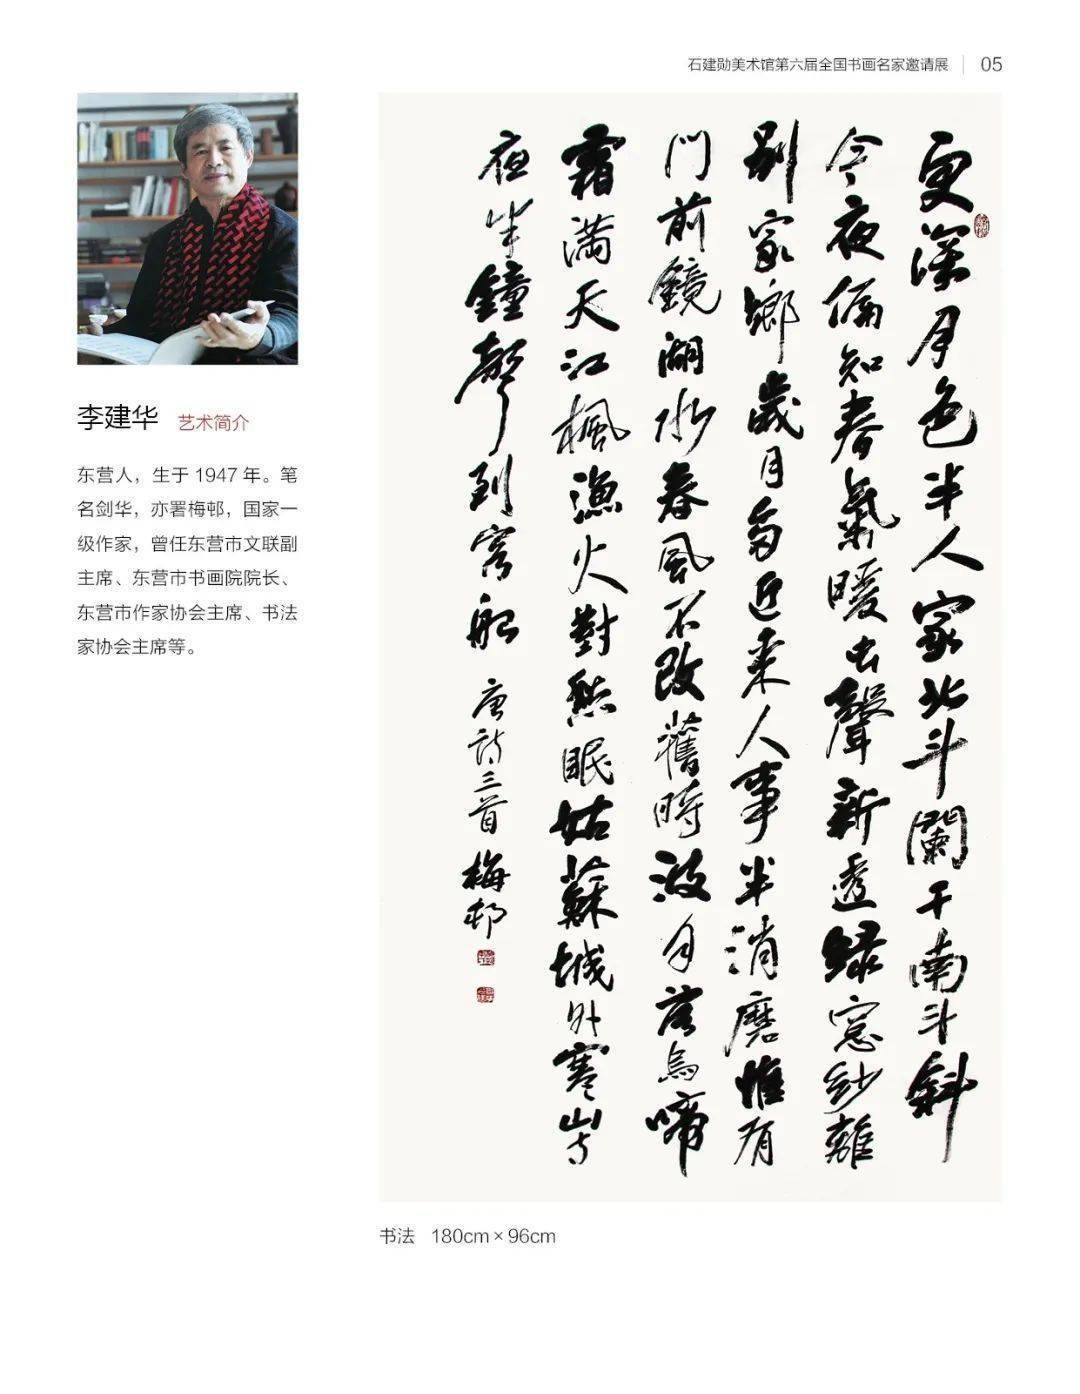 石建勋美术馆第六届全国书画名家邀请展 05
李建华 艺术简介
东营人，生于 1947 年。笔
名剑华，亦署梅邨，国家一
级作家，曾任东营市文联副
主席、东营市书画院院长、
东营市作家协会主席、书法
家协会主席等。
更深月色半人家北斗闌干南斗斜
今夜偏知春氣暖虫聲新透緑窓紗離
别家鄉歲月多近来人事半消磨惟有
門前鏡湖水春風不改舊時波月落烏啼
霜满天江楓漁火對愁眠姑蘇城外寒山寺
夜半鐘聲到客船 唐詩三首 梅邨
书法 180cm×96cm